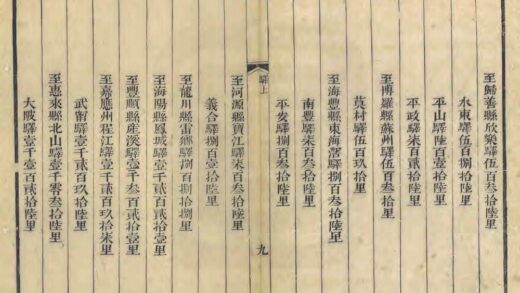 至歸善縣欣樂驛伍百叁拾陸里
水東驛伍百捌拾里
平山驛陸百壹拾里
平政驛柒百貳拾陸里
至博羅縣蘇州驛伍百叁拾里
莫村驛伍百玖拾里
至海豐縣東海滘驛捌百叁拾陸里
南豐驛柒百叁拾陸里
平安驛捌百叁拾陸里
驛上
九
至河源縣寶江驛柒百叁拾陸里
義合驛捌百壹拾陸里
至龍川縣雷鄉驛捌百捌拾捌里
至海陽縣鳳城驛壹千貳百叁拾陸里
至豐順縣産溪驛壹千叁百貳拾壹里
至嘉應州程江驛壹千貳百玖拾柒里
武甯驛壹千貳百玖拾陸里
至惠來縣北山驛壹千零叁拾陸里
大陂驛壹千壹百貳拾陸里